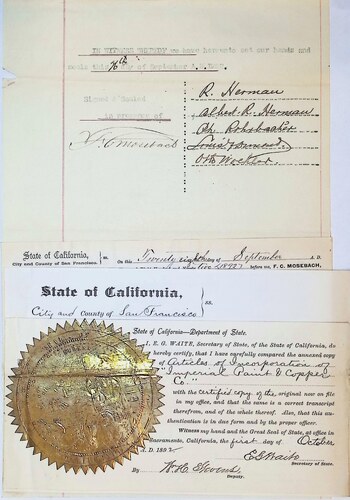 IN WITNESS WHEREOF we have hereunto set our hands and
seals this 26th day of September A.D.
Signed & Sealed
in presence of
F. C. Mosebach
R. Herman
Albert R. Herman
Ph. Rohrbacher
State of California,
City and County of San Francisco.
ss.
On this Twenty eighth day of September A.D.
before me, F. C. MOSEBACH,
State of California,
City and County of San Francisco
ss.
State of California—Department of State.
I, E. G. WAITE, Secretary of State, of the State of California, do
hereby certify, that I have carefully compared the annexed copy
of Articles of Incorporation of
"Imperial Paint & Copper
Co."
with the certified copy of the original now on file
in my office, and that the same is a correct transcript
therefrom, and of the whole thereof. Also, that this
authentication is in due form and by the proper officer.
Witness my hand and the Great Seal of State, at office in
Sacramento, California, the first day of October
A.D. 189
E G Waite
Secretary of State.
By W. H. Stevens
Deputy.